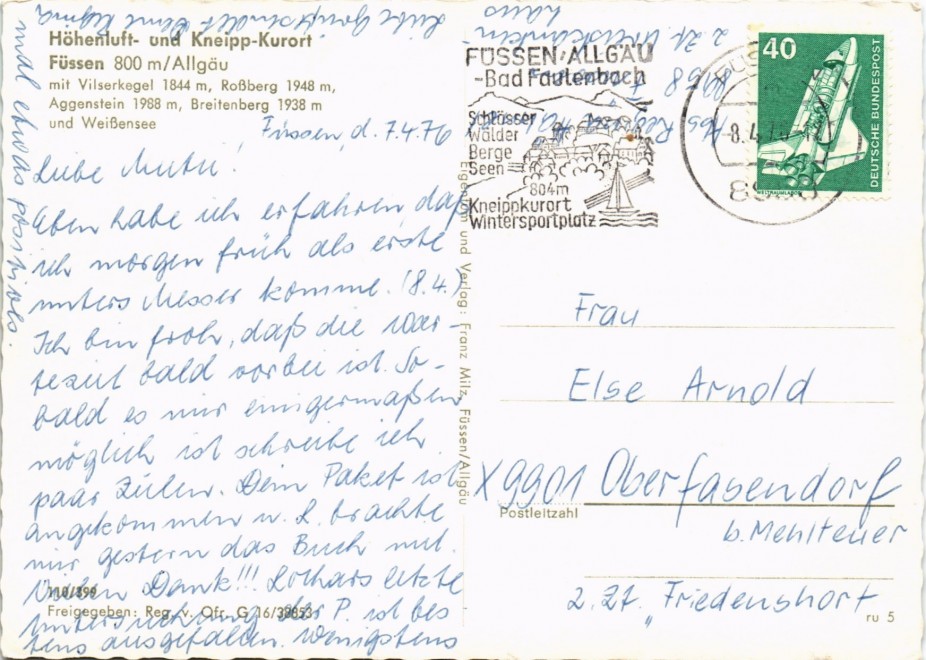 Höhenluft- und Kneipp-Kurort
Füssen 800 m/Allgäu
mit Vilserkegel 1844 m, Roßberg 1948 m,
Aggenstein 1988 m, Breitenberg 1938 m
und Weißensee
Füssen, d. 7.4.76
Liebe Mutti!
Eben habe ich erfahren daß
ich morgen früh als erste
unters Messer komme. (8.4.)
Ich bin froh, daß die War-
tezeit bald vorbei ist. So-
bald es mir einigermaßen
möglich ist schreibe ich
paar Zeilen. Dein Paket ist
angekommen u. L. brachte
mir gestern das Buch mit.
Vielen Dank!!! Lothars letzte
Untersuchung der P. ist bes
tens ausgefallen. Wenigstens
mal etwas positives.
Liebe Grüße sendet Deine Regina
110/899
Freigegeben: Reg. v. Ofr. G 16/30853
Eigentum und Verlag: Franz Milz, Füssen/Allgäu
Abs
8958 Füssen
z. Zt. Kreiskranken-
haus
FÜSSEN/ALLGÄU
-Bad Faulenbach
Schlösser
Wälder
Berge
Seen
804m
Kneippkurort
Wintersportplatz
-8.4.76
40
DEUTSCHE BUNDESPOST
WELTRAUMLABOR
Frau
Else Arnold
X9901 Oberfasendorf
Postleitzahl
b. Mehlteuer
z. Zt. "Friedenshort
ru 5